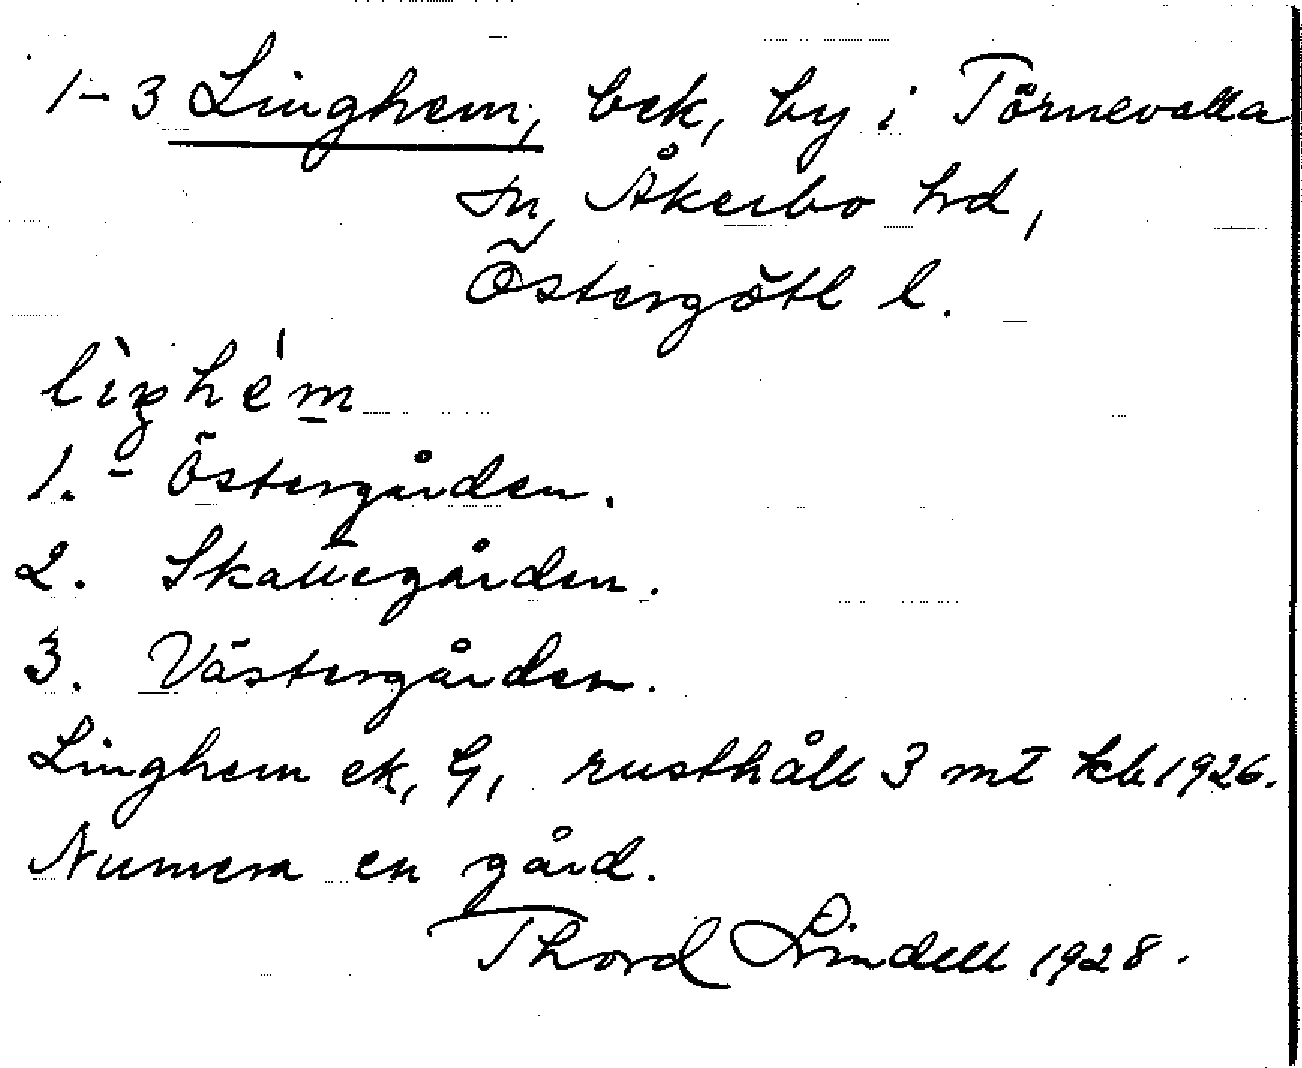 1-3 Linghem, bek, by i Törnevalla
sn, Åkerbo hrd,
Östergötl l.
lìŋhém
1. - Östergården.
2. Skattegården.
3. Västergården.
Linghem ek, G, rusthåll 3 mt kb 1926.
Numera en gård.
Thord Lindell 1928.